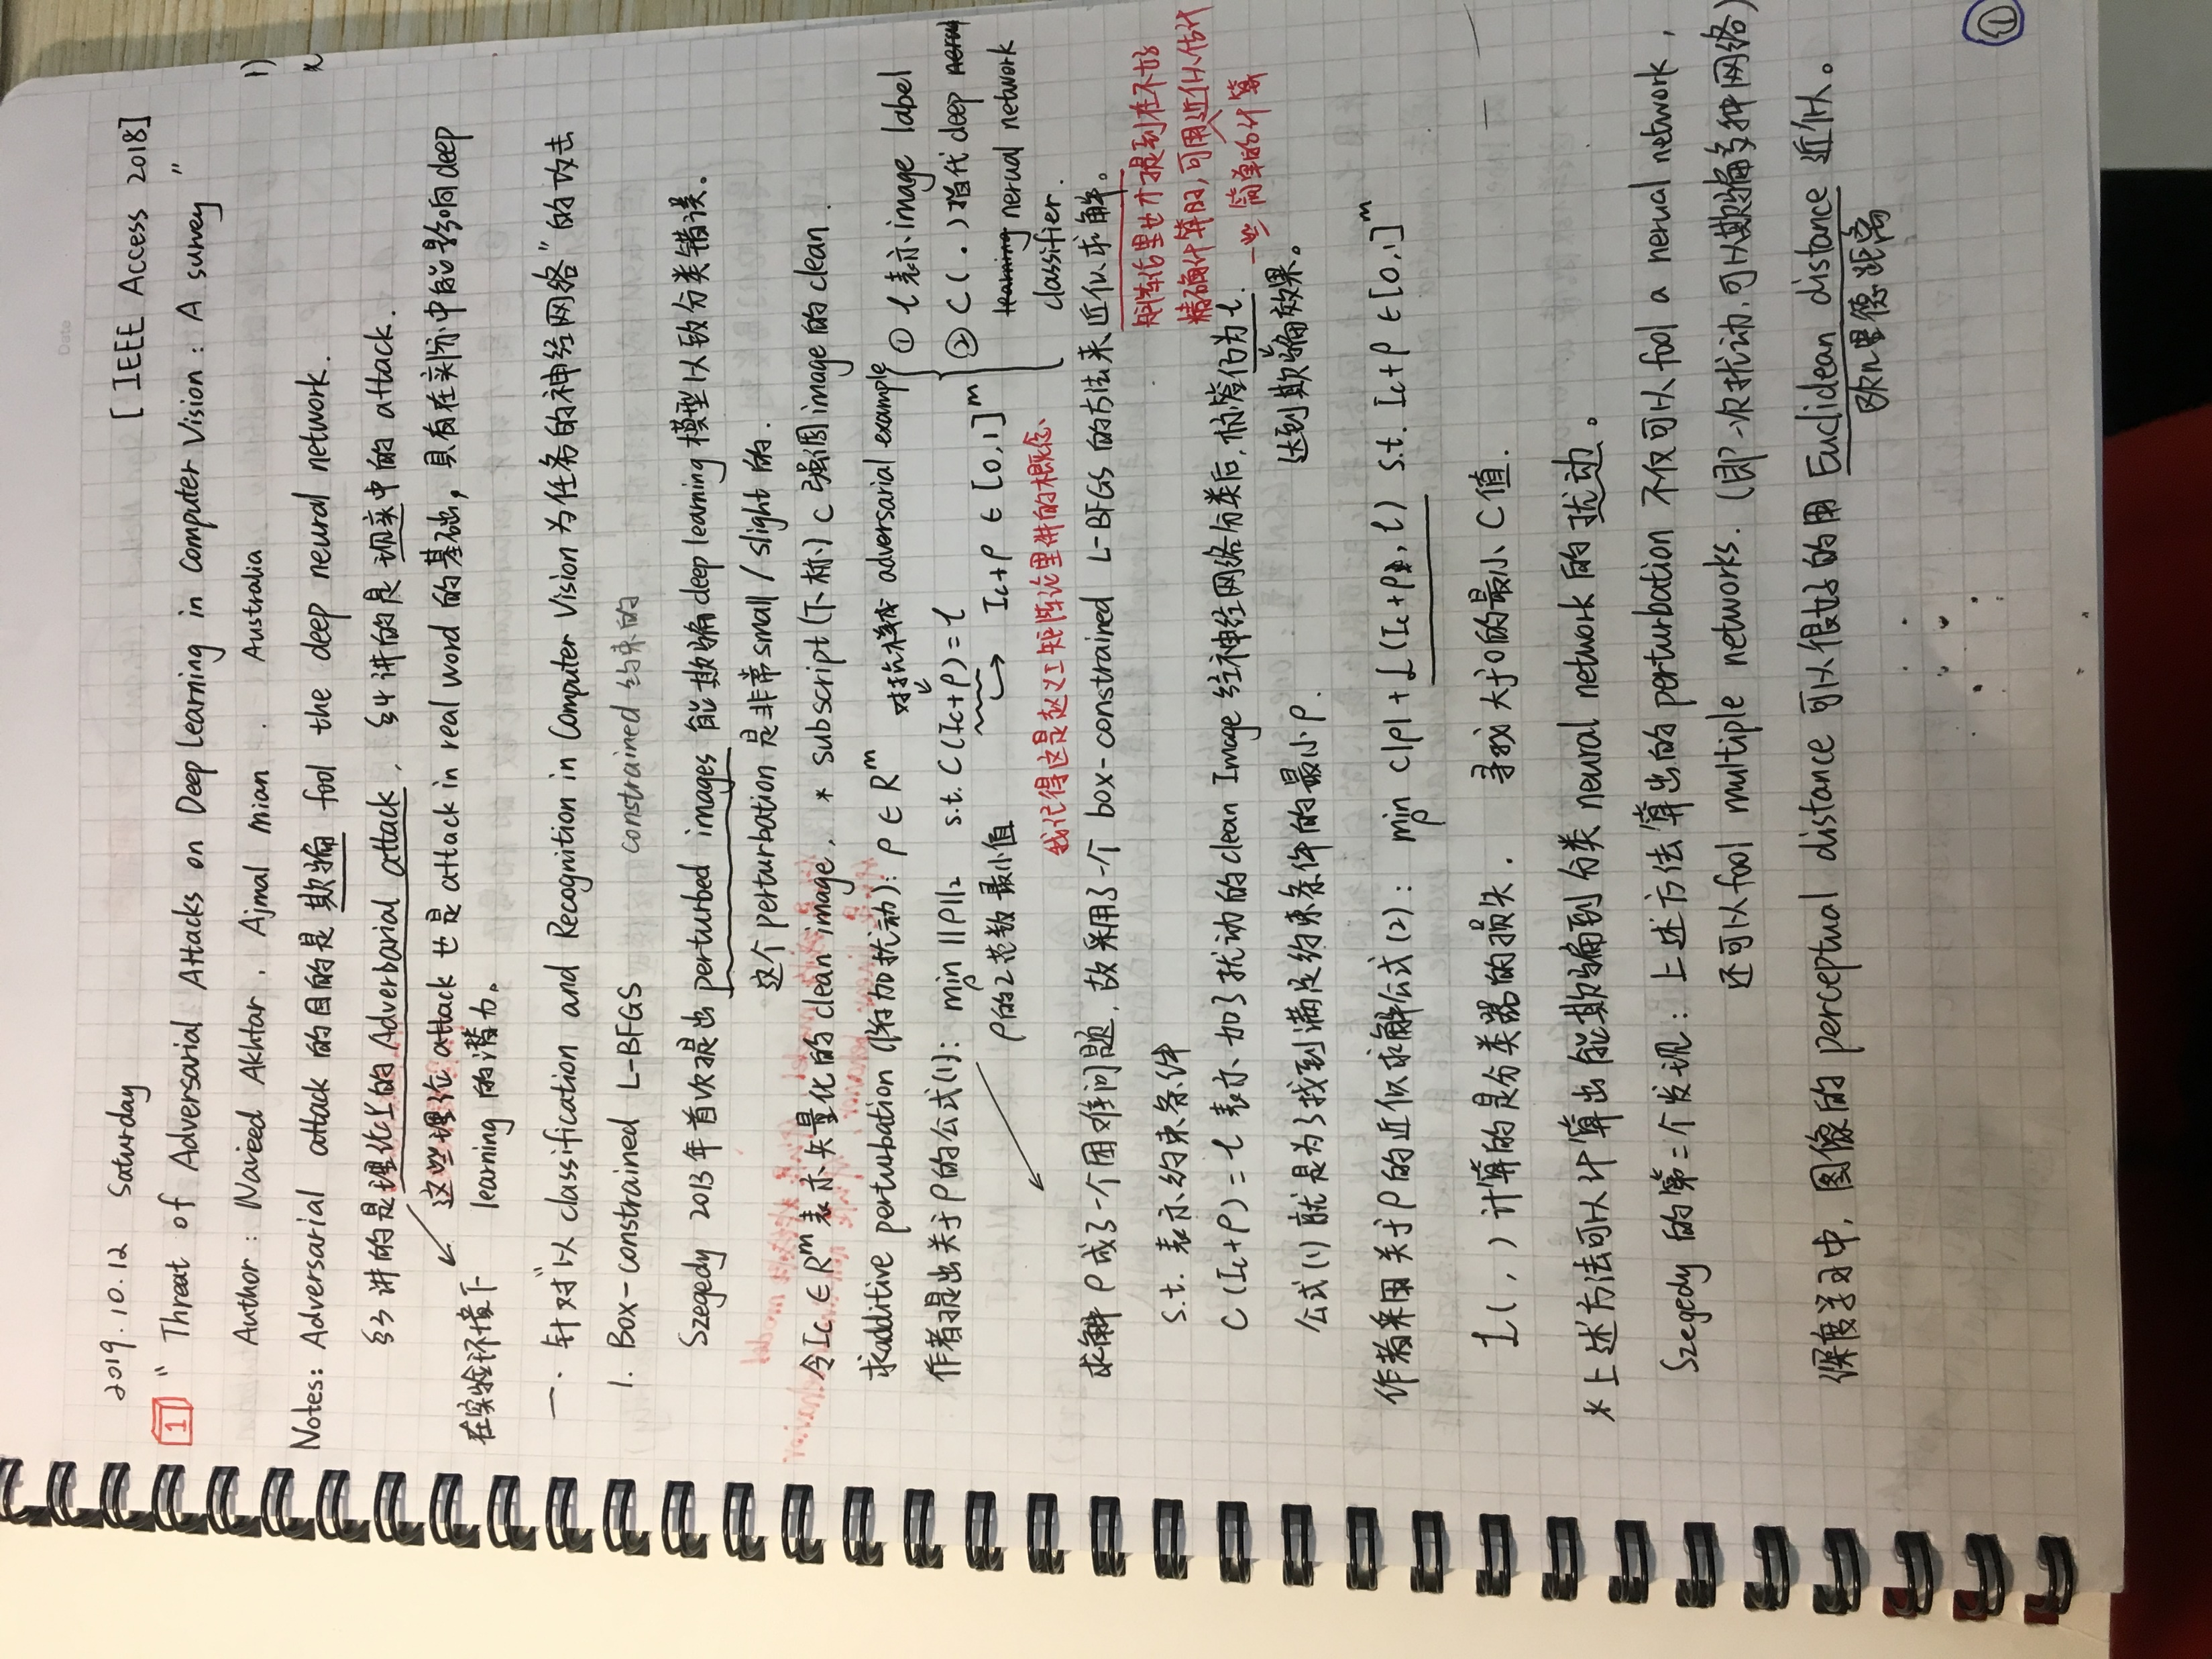 Date
2019.10.12 Saturday [IEEE Access 2018]
1 "Threat of Adversarial Attacks on Deep Learning in Computer Vision: A survey"
Author: Naveed Akhtar. Ajmal mian. Australia
Notes: Adversarial attack 的目的是欺骗 fool the deep neural network.
§3 讲的是理论上的 Adverbarial attack. §4 讲的是现实中的 attack.
这些理论 attack 也是 attack in real word 的基础, 具有在实际中能影响 deep
在实验环境下 learning 的潜力。
一. 针对"以 classification and Recognition in Computer Vision 为任务的神经网络"的攻击
1. Box-constrained L-BFGS constrained 约束的
Szegedy 2013年首次提出 perturbed images 能欺骗 deep learning 模型以致分类错误。
这个 perturbation 是非常 small / slight 的.
令 Ic ∈ R^m 表示矢量化的 clean image. * subscript (下标) c 强调 image 的 clean.
求 additive perturbation (附加扰动): ρ ∈ R^m 对抗样本 adversarial example
① ℓ 表示 image label
作者提出关于 ρ 的公式(1): min ||ρ||2 s.t. C(Ic+ρ)=ℓ
ρ
→ Ic+ρ ∈ [0,1]^m
② C(.) 指代 deep nerual
learning nerual network
classifier.
ρ的2范数最小值
我记得这是赵义工矩阵论里讲的概念
求解 ρ 成了一个困难问题, 故采用了一个 box-constrained L-BFGS 的方法来近似求解。
矩阵论里也有提到在不好
精确计算时, 可用近似估计
一些简单的计算
s.t. 表示约束条件
C(Ic+ρ)=ℓ 表示加了扰动的 clean Image 经神经网络分类后, 标签仍为 ℓ.
达到欺骗效果。
公式(1)就是为了找到满足约束条件的最小 ρ.
作者采用关于 ρ 的近似求解公式(2): min c|ρ| + L(Ic+ρ, ℓ) s.t. Ic+ρ ∈ [0,1]^m
ρ
L(,) 计算的是分类器的损失. 寻找大于0的最小 C 值.
* 上述方法可以计算出能欺骗到分类 neural network 的扰动。
Szegedy 的第二个发现: 上述方法算出的 perturbation 不仅可以 fool a nerual network,
还可以 fool multiple networks. (即一次扰动, 可以欺骗多种网络)
保度学习中, 图像的 perceptual distance 可以很好的用 Euclidean distance 近似。
欧几里德距离
①